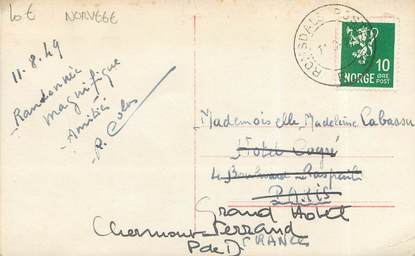 10 €
NORVEGE
11.8.49
Randonnée
magnifique
Amitiés
R. Colas
ROMSDALS
10
ØRE
POST
NORGE
Mademoiselle Madeleine Cabassu
Hotel
Boulevard Raspail
PARIS
Grand Hotel
Clermont Ferrand
P de D
FRANCE